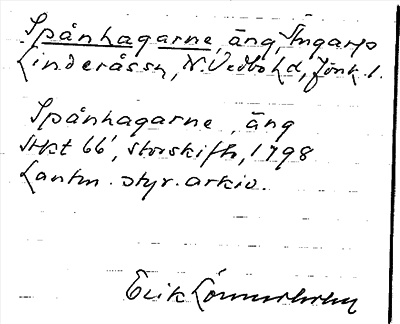 Spånhagarne, äng, Ingarp
Linderåssn, N. Vedbo hd, Jönk. l.
Spånhagarne, äng
Stkt 66, storskifte, 1798
Lantm. styr. arkiv.
Erik Lönnerholm